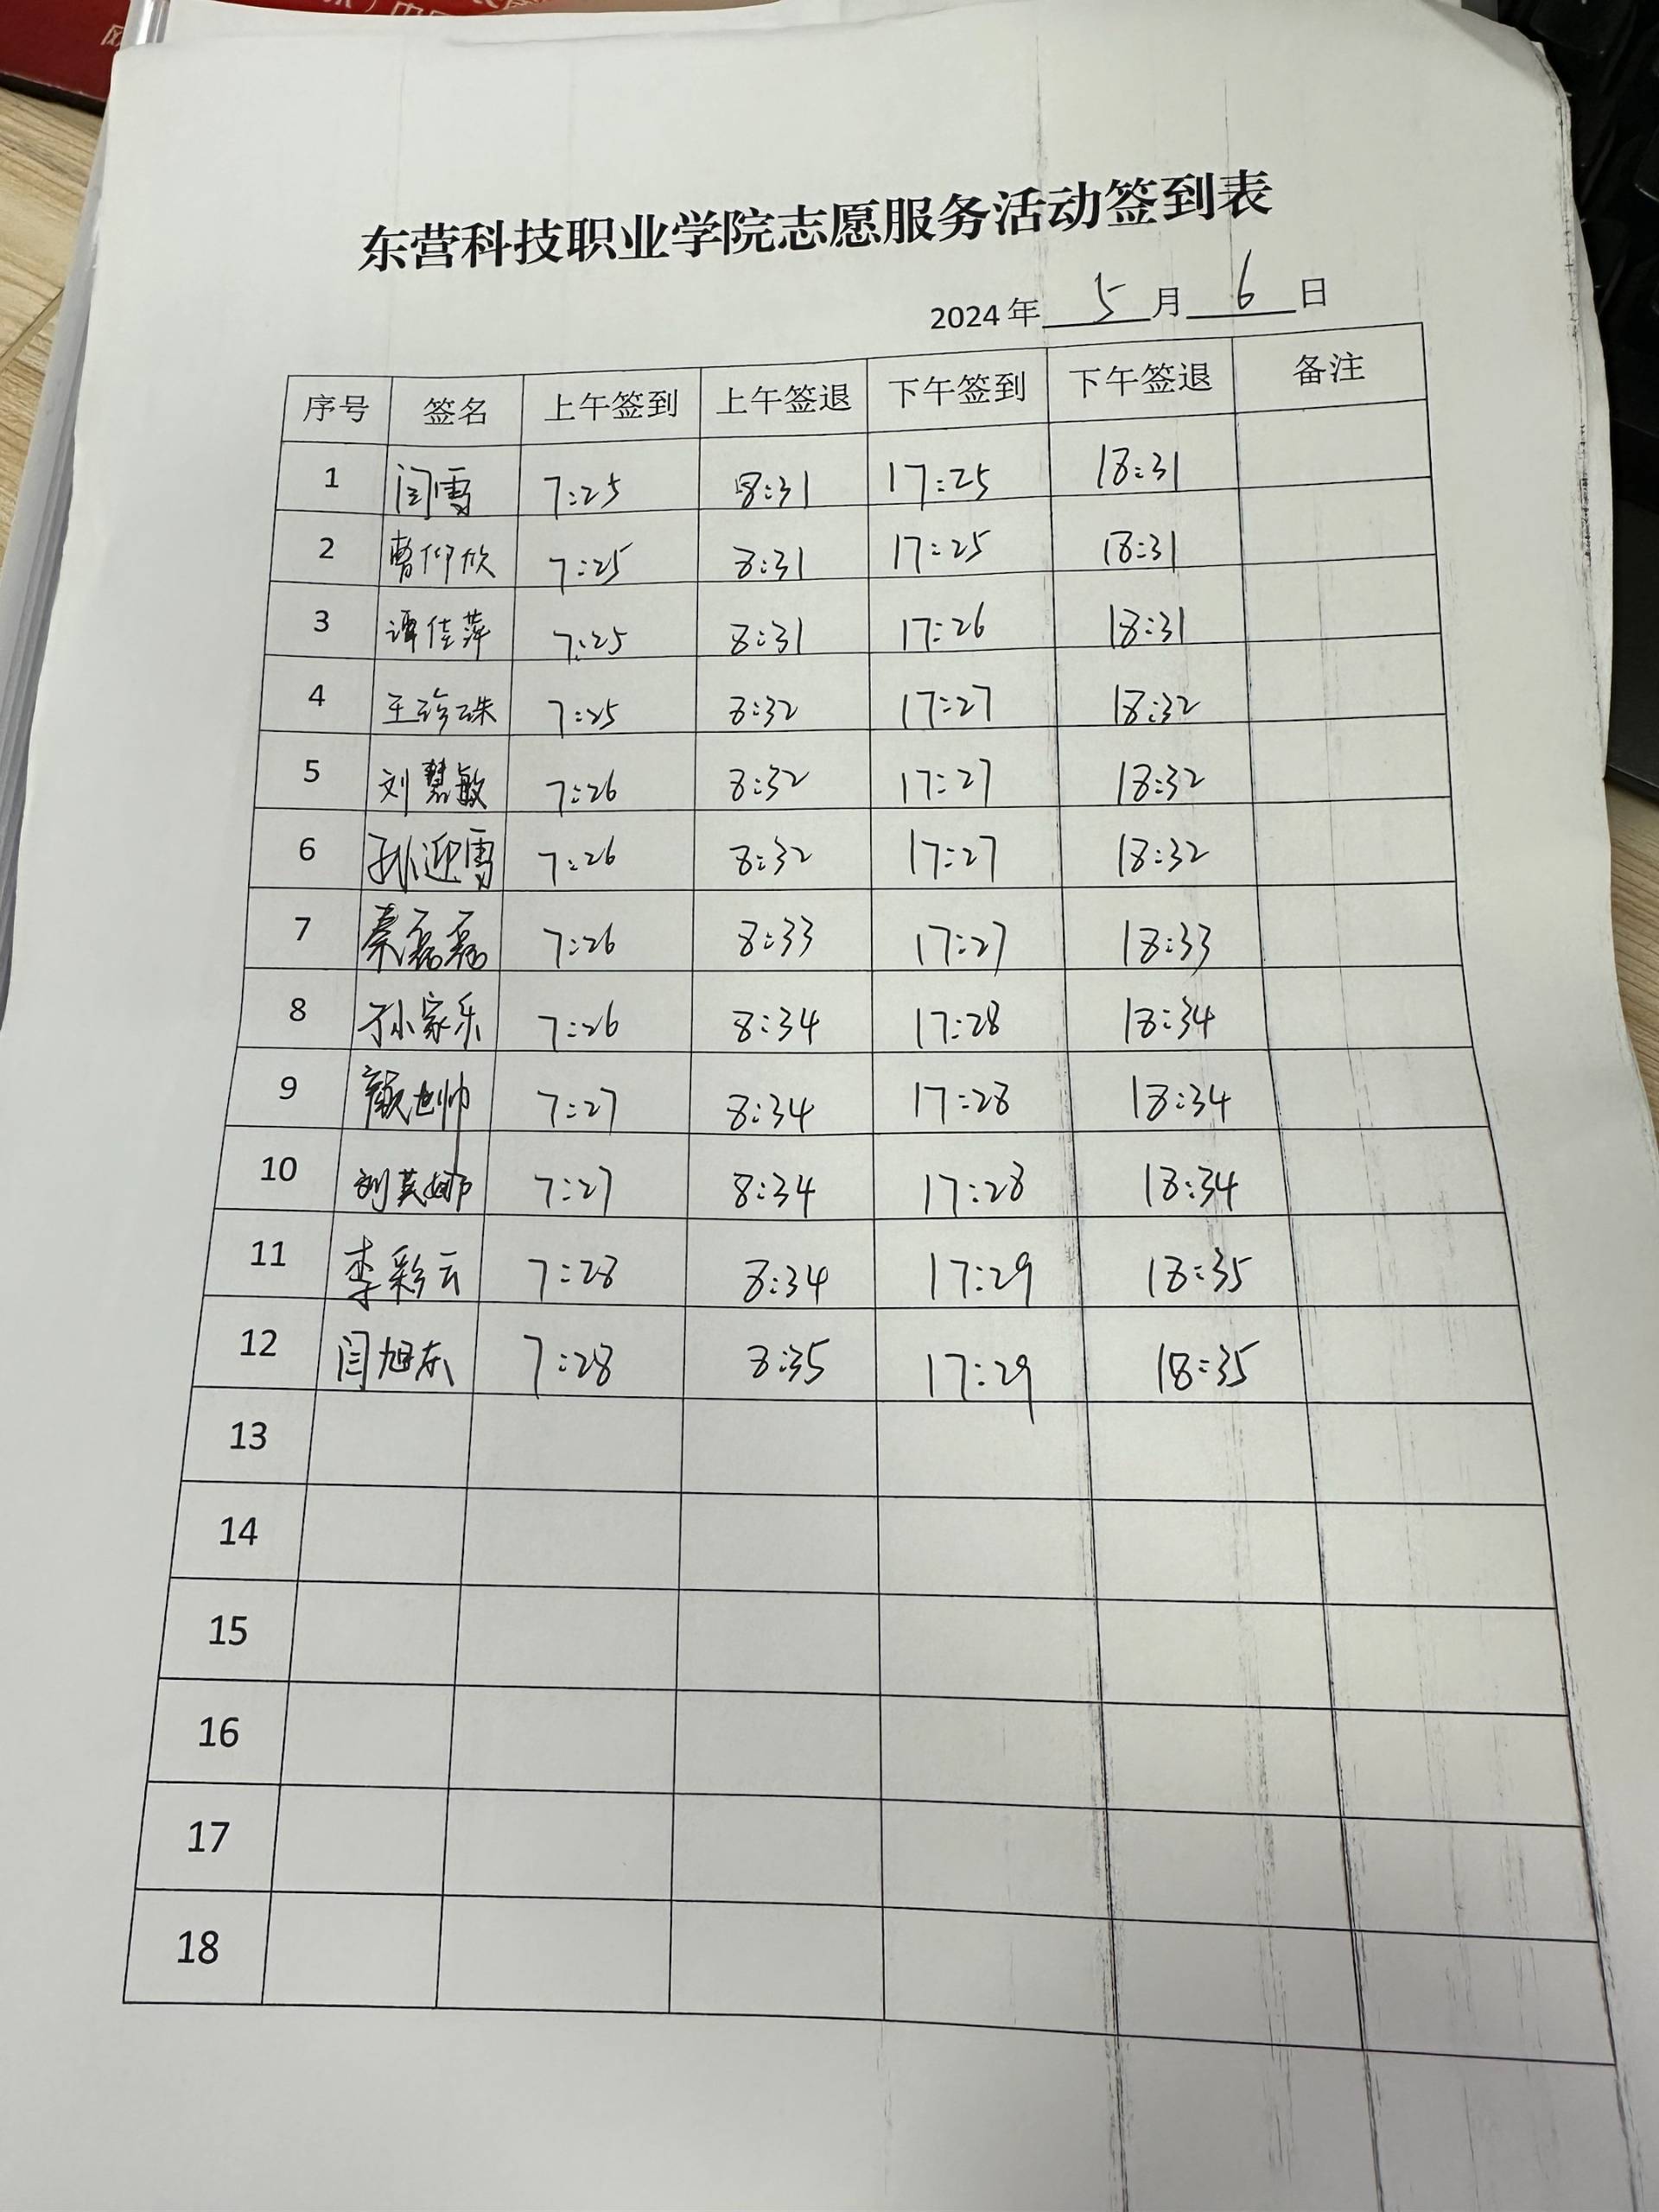 东营科技职业学院志愿服务活动签到表
2024年 5 月 6 日
序号 签名 上午签到 上午签退 下午签到 下午签退 备注
1 闫雪 7:25 8:31 17:25 18:31
2 曹仰欣 7:25 8:31 17:25 18:31
3 谭佳萍 7:25 8:31 17:26 18:31
4 王珍珠 7:25 8:32 17:27 18:32
5 刘慧敏 7:26 8:32 17:27 18:32
6 孙迎雪 7:26 8:32 17:27 18:32
7 秦磊磊 7:26 8:33 17:27 18:33
8 孙家乐 7:26 8:34 17:28 18:34
9 颜旭帅 7:27 8:34 17:28 18:34
10 刘英娜 7:27 8:34 17:28 18:34
11 李彩云 7:28 8:34 17:29 18:35
12 闫旭东 7:28 8:35 17:29 18:35
13
14
15
16
17
18